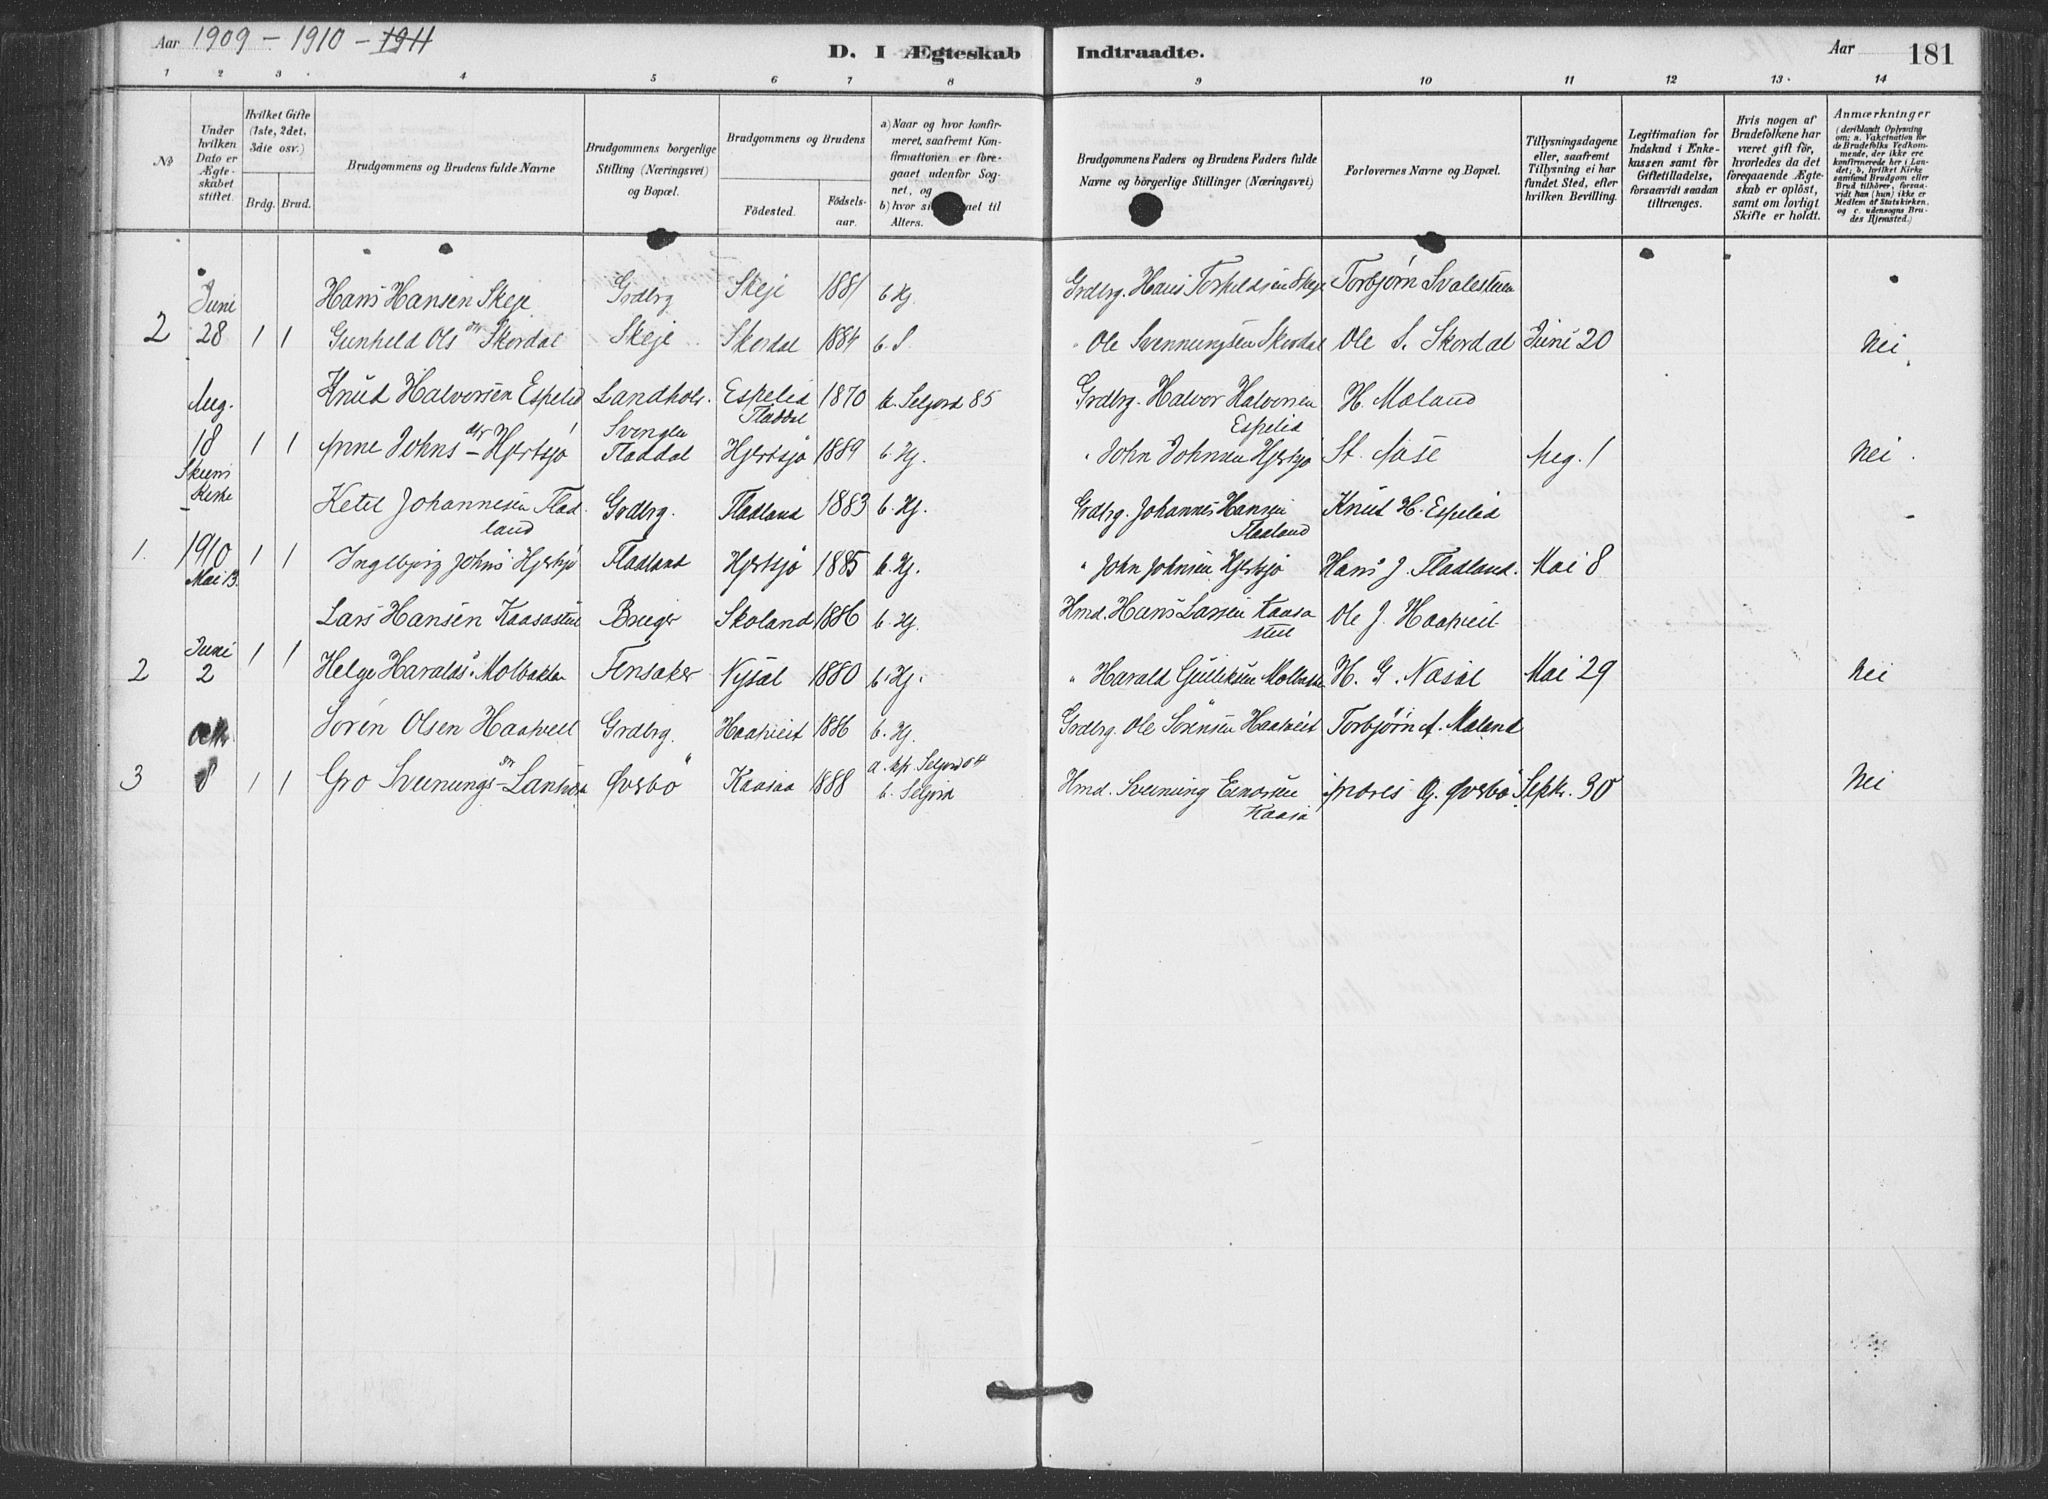 Aar 1909 - 1910 - 1911
D. I Ægteskab Indtraadte.
Aar 181
1 2 3 4 5 6 7 8 9 10 11 12 13 14
№
Under hvilken Dato er Ægteskabet stiftet.
Hvilket Gifte (1ste, 2det, 3die osv.)
Brdg. Brud.
Brudgommens og Brudens fulde Navne
Brudgommens borgerlige Stilling (Næringsvei) og Bopæl.
Brudgommens og Brudens
Fødested. Fødselsaar.
a) Naar og hvor konfirmeret, saafremt Konfirmationen er foregaaet udenfor Sognet, og
b) hvor til Alters.
Brudgommens Faders og Brudens Faders fulde Navne og borgerlige Stillinger (Næringsvei)
Forlovernes Navne og Bopæl.
Tillysningsdagene eller, saafremt Tillysning ei har fundet Sted, efter hvilken Bevilling.
Legitimation for Indskud i Enkekassen samt for Giftetilladelse, forsaavidt saadan tiltrænges.
Hvis nogen af Brudefolkene har været gift før, hvorledes da det foregaaende Ægteskab er opløst, samt om lovligt Skifte er holdt.
Anmærkninger (deriblandt Oplysning om: a. Vakcination for de Brudefolks Vedkommende, der ikke ere konfirmerede her i Landet; b. hvilket Kirkesamfund Brudgom eller Brud tilhører, forsaavidt han (hun) ikke er Medlem af Statskirken, og c. udensogns Brudes Hjemsted.)
Juni Hans Hansen Skeje Grdbrg Skeje 1881 b. Hj. Grdbrg. Hans Torkildsen Skeje Torbjørn Svalesteen
2 28 1 1 Gunhild Ols dtr Skordal Skeje Skordal 1884 b. S " Ole Svenningsen Skordal Ole S. Skordal Juni 20 Nei
Aug. Knud Halvorsen Espelid Landhdl. Espelid 1870 b. Seljord 85 Grdbrg. Halvor Halvorsen H. Moland
Svenglu Fladdal Espelid
18 1 1 Anne Johns dtr - Hjertsjø Fladdal Hjertsjø 1889 b. Hj. " John Johnsen Hjertsjø St. Aase Aug. 1 Nei
Skiens Kirke
Ketil Johannesen Flad- Grdbrg. Fladland 1883 b. Hj. Grdbrg. Johannes Hansen Knud H. Espelid
land Fladland
1. 1910 1 1 Ingebjørg Johns Hjertsjø Fladland Hjertsjø 1885 b. Hj. " John Johnsen Hjertsjø Hans J. Fladland. Mai 8
Mai 13.
Lars Hansen Kaasastul Bruger Skoland 1886 b. Hj. Hmd. Hans Larsen Kaasa Ole J. Haatveit
Juni stul
2 2 1 1 Helge Haralds Molbakken Tensaker Nysæl 1880 b. Hj. " Harald Gulliksen H. G. Nasæl Mai 29 Nei
Sørén Olsen Haatveit Grdbrg. Haatveit 1886 b. Hj. Grdbrg. Ole Sørensen Haatveit Torbjørn A. Moland
a. Seljord 04
3 8 1 1 Gro Sveinungs Øverbø Kaasaa 1888 b. Seljord Hmd. Sveinung Einarsen Andres G. Øverbø. Septr. 30 Nei
Kaasa